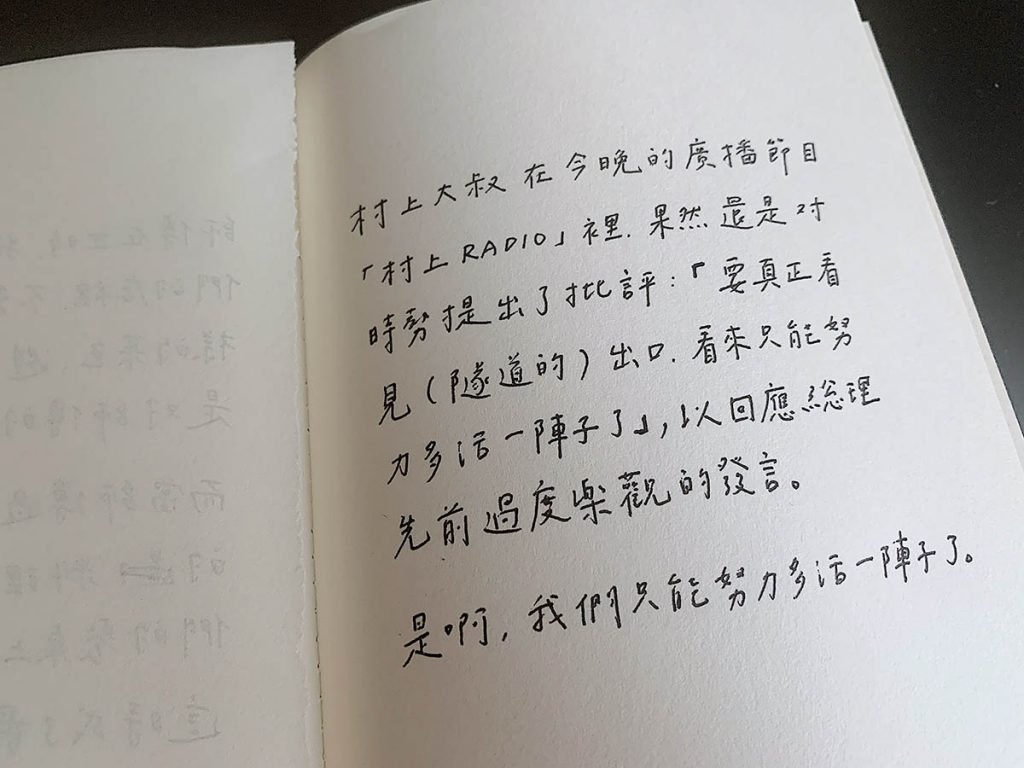 村上大叔在今晚的廣播節目
「村上RADIO」裡,果然還是對
時勢提出了批評:「要真正看
見(隧道的)出口,看來只能努
力多活一陣子了」,以回應総理
先前過度樂觀的發言。
是啊,我們只能努力多活一陣子了。